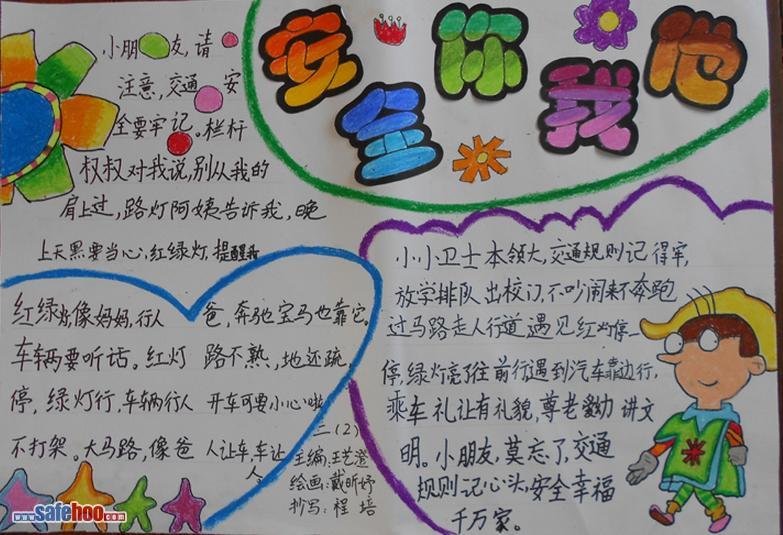 安全你我他
小朋友,请
注意,交通安
全要牢记。栏杆
叔叔对我说,别从我的
肩上过,路灯阿姨告诉我,晚
上天黑要当心,红绿灯,提醒我
红绿灯像妈妈,行人
车辆要听话。红灯
停,绿灯行,车辆行人
不打架。大马路,像爸
爸,奔驰宝马也靠它。
路不熟,地还疏,
开车可要小心啦
人让车,车让
人
三(2)
主编:王艺澄
绘画:戴昕妤
抄写:程培
小小卫士本领大,交通规则记得牢,
放学排队出校门,不吵闹来不奔跑
过马路走人行道遇见红灯停一
停,绿灯亮了往前行遇到汽车靠边行,
乘车礼让有礼貌,尊老爱幼讲文
明。小朋友,莫忘了,交通
规则记心头,安全幸福
千万家。
www.safehoo.com